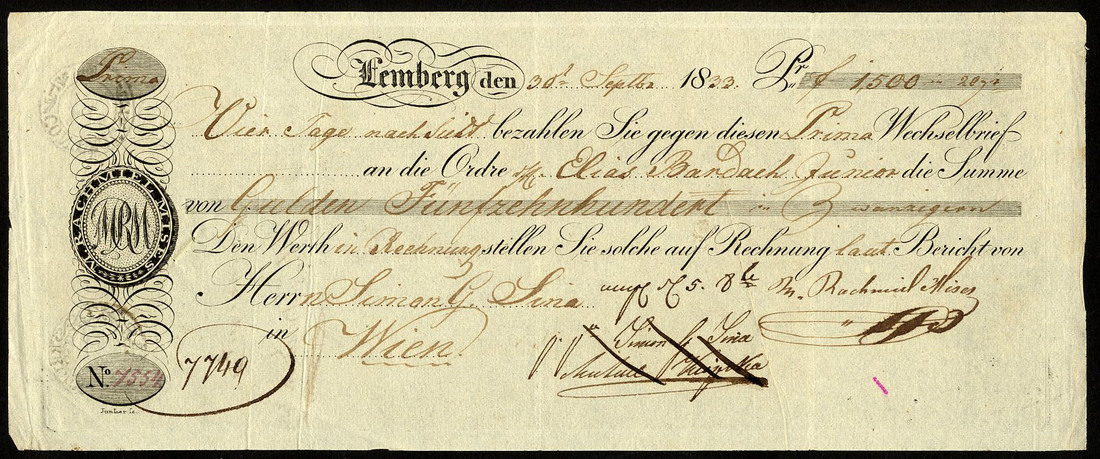 Prima
Lemberg den 30t Septbr 1833. Pr f 1500 in 20gr
Vier Tage nach Sicht bezahlen Sie gegen diesen Prima Wechselbrief
an die Ordre H. Elias Bardach Junior die Summe
von Gulden Fünfzehnhundert in Zwanzigern
Den Werth in Rechnung stellen Sie solche auf Rechnung laut Bericht von
Herrn Simon G. Sina
M. Rachmiel Mises
in Wien
Simon G Sina
M. RACHMIEL MISES
MRM
No 7554
7749